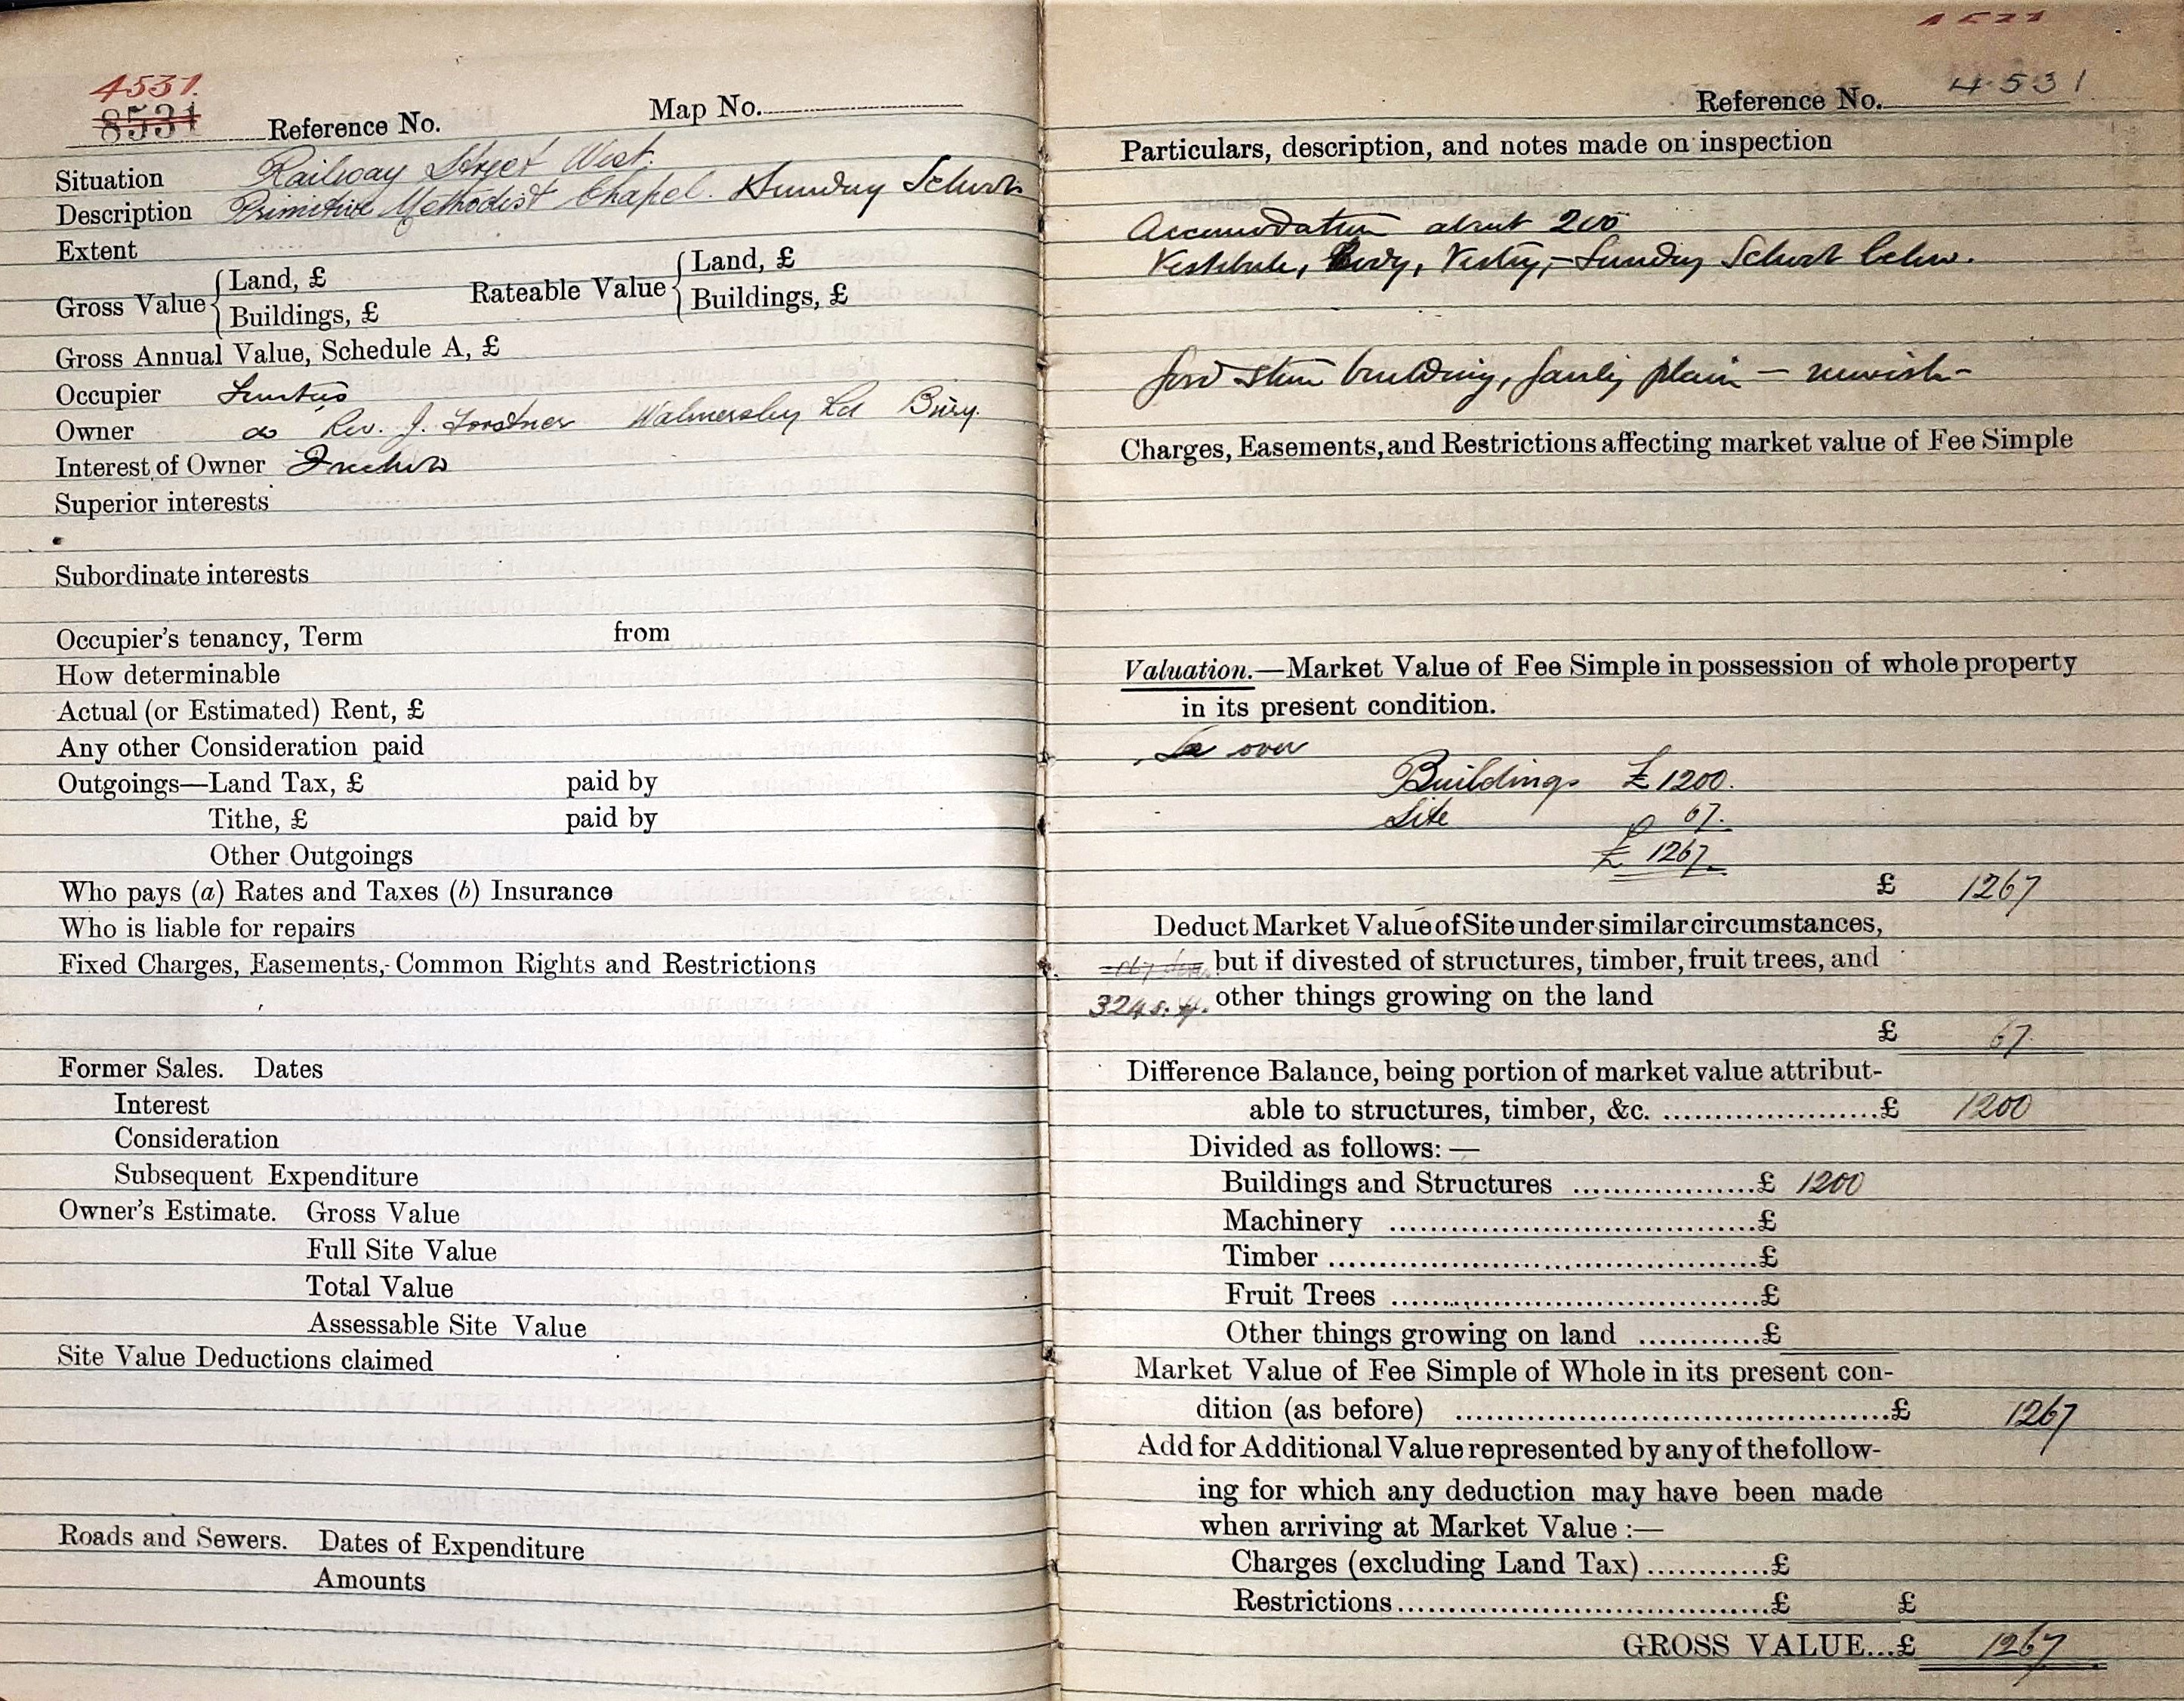 4531.
8531 Reference No. Map No.
Situation Railway Street West.
Description Primitive Methodist Chapel. & Sunday School
Extent
Gross Value { Land, £ Rateable Value { Land, £
Buildings, £ Buildings, £
Gross Annual Value, Schedule A, £
Occupier Trustees
Owner do Rev. J. Walmersley Rd Bury.
Interest of Owner Freehold
Superior interests
Subordinate interests
Occupier's tenancy, Term from
How determinable
Actual (or Estimated) Rent, £
Any other Consideration paid
Outgoings—Land Tax, £ paid by
Tithe, £ paid by
Other Outgoings
Who pays (a) Rates and Taxes (b) Insurance
Who is liable for repairs
Fixed Charges, Easements, Common Rights and Restrictions
Former Sales. Dates
Interest
Consideration
Subsequent Expenditure
Owner's Estimate. Gross Value
Full Site Value
Total Value
Assessable Site Value
Site Value Deductions claimed
Roads and Sewers. Dates of Expenditure
Amounts
Reference No. 4531
Particulars, description, and notes made on inspection
Accomodation about 200
Vestibule, Body, Vestry, - Sunday School below.
Good stone building, fairly plain — newish -
Charges, Easements, and Restrictions affecting market value of Fee Simple
Valuation.—Market Value of Fee Simple in possession of whole property
in its present condition.
over
Buildings £1200.
Site 67.
£ 1267
£ 1267
Deduct Market Value of Site under similar circumstances,
but if divested of structures, timber, fruit trees, and
324 s. y. other things growing on the land
£ 67.
Difference Balance, being portion of market value attribut-
able to structures, timber, &c. ....................£ 1200
Divided as follows: —
Buildings and Structures ..................£ 1200
Machinery ....................................£
Timber ..........................................£
Fruit Trees ....................................£
Other things growing on land ............£
Market Value of Fee Simple of Whole in its present con-
dition (as before) ..........................................£ 1267
Add for Additional Value represented by any of the follow-
ing for which any deduction may have been made
when arriving at Market Value :—
Charges (excluding Land Tax)............£
Restrictions....................................£ £
GROSS VALUE...£ 1267